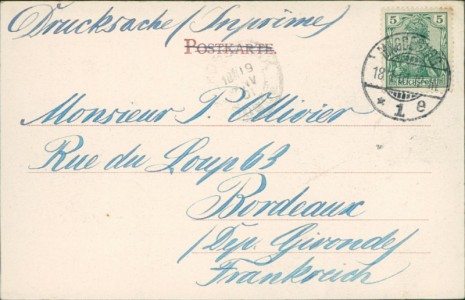 Drucksache (Imprimé)
POSTKARTE
5 5
REICHSPOST
18
* 1 e
19
Monsieur P. Ollivier
Rue du Loup 63
Bordeaux
(Dep. Gironde)
Frankreich